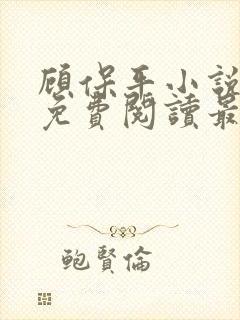 顧保平小說
免費閱讀最
鮑賢倫